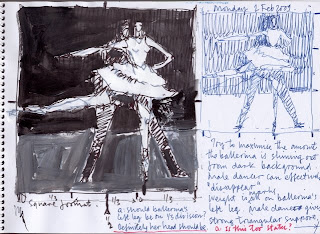 Monday 2 Feb 2009
Try to maximise the amount
the ballerina is shining out
from dark background.
Male dancer can effectively
"disappear"
Weight is all on ballerina's
left leg. Male dancer gives
strong triangular support.
Q: Is this too static?
Square format.
1/3
1/2
1/3
1/2
1/3
Q: Should ballerina's
left leg be on 1/3 division?
Definitely her head should be.